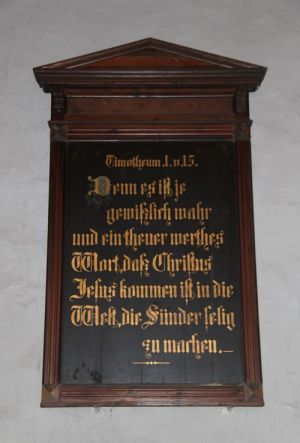 Timotheum.1.v.15.
Denn es ist je
gewißlich wahr
und ein theuer werthes
Wort, daß Christus
Jesus kommen ist, in die
Welt, die Sünder selig
zu machen.